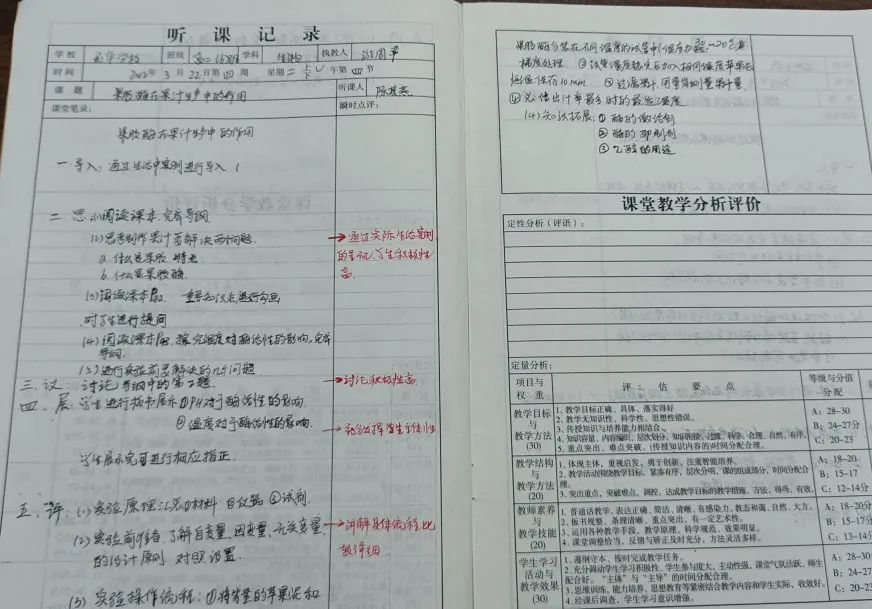 听课记录
学校 学校 班级 高二(6)班 学科 生物 执教人
时间 年3月22日第四周 星期二 上 午第四节
课题 果胶酶在果汁生产中的作用 听课人
课堂笔录: 瞬时点评:
果胶酶在果汁生产中的作用
一 导入: 通过生活中案例进行导入
二 思 阅读课本 完成导纲
(2)思考制作果汁要解决两问题
a. 什么是果胶 特点
b. 什么是果胶酶
(3)阅读课本 重要知识点进行勾画
对学生进行提问
(4)阅读课本 探究温度对酶活性的影响,完成
导纲
(5)进行实验前需解决的几个问题
→通过实际生活案例
的导课,学生积极性
高
三.议: 讨论导纲中的第2题
→讨论积极性高
四.展: 学生进行板书展示 ①PH对于酶活性的影响
②温度对于酶活性的影响
→充分发挥学生主体性
学生展示完可进行相应指正
五.评: (1)实验原理 材料 仪器 试剂
(2)实验前准备,了解自变量,因变量,无关变量
的设计原则 对照 设置
→讲解具体流程比
较详细
(3)实验操作流程: ①将等量的苹果泥和
果胶酶分装在不同温度的试管中
梯度处理 ②试管温度稳定后加入相同温度苹果泥
恒温保存10min ③过滤果汁,用量筒测量果汁量
④ 得出汁率最多时的最适温度
(4)知识拓展: ①酶的激活剂
②酶的抑制剂
③乙醇的用途
课堂教学分析评价
定性分析(评语):
定量分析:
项目与权重 评估要点 等级与分值分配
教学目标与教学方法(30)
1、教学目标正确、具体、落实得好
2、教学无知识性、科学性、思想性错误。
3、传授知识与培养能力相结合。
4、知识容量、内容编织、层次划分、知识衔接、过渡、科学、合理、自然、有序。
5、重点突出,难点突破,(传授知识内容的)时间分配合理。
A:28-30
B:24-27分
C:20-23
教学结构与教学方法(20)
1、体现主体,重视启发,勇于创新,注重智能培养。
2、教学活动围绕教学目标,紧凑有序,层次分明,课的组成部分,时间分配合理。
3、突出重点,突破难点,调控、达成教学目标的教学措施、方法、得当、有效。
A:18-20
B:15-17
C:12-14分
教师素养与教学技能(20)
1、普通话教学,表达正确、简洁、清晰、有感染力,教态和蔼、自然、大方。
2、板书规整、条理清晰、重点突出、有一定艺术性。
3、运用各种教学手段、教学原理、科学规范、效果明显。
4、课堂调整恰当,反馈与矫正及时充分、方法灵活多样。
A:18-20分
B:15-17分
C:13-14分
学生学习活动与教学效果(30)
1、遵纲守本、按时完成教学任务。
2、充分调动学生学习积极性,学生参与度大、主动性强,课堂气氛活跃、师生
配合好。“主体”与“主导”的时间分配合理。
3、思维训练、能力培养、思想教育等紧密结合教学内容和学生实际、收效好。
4、经课后调查,学生学习意识增强。
A:28-30
B:24-27
C:20-23